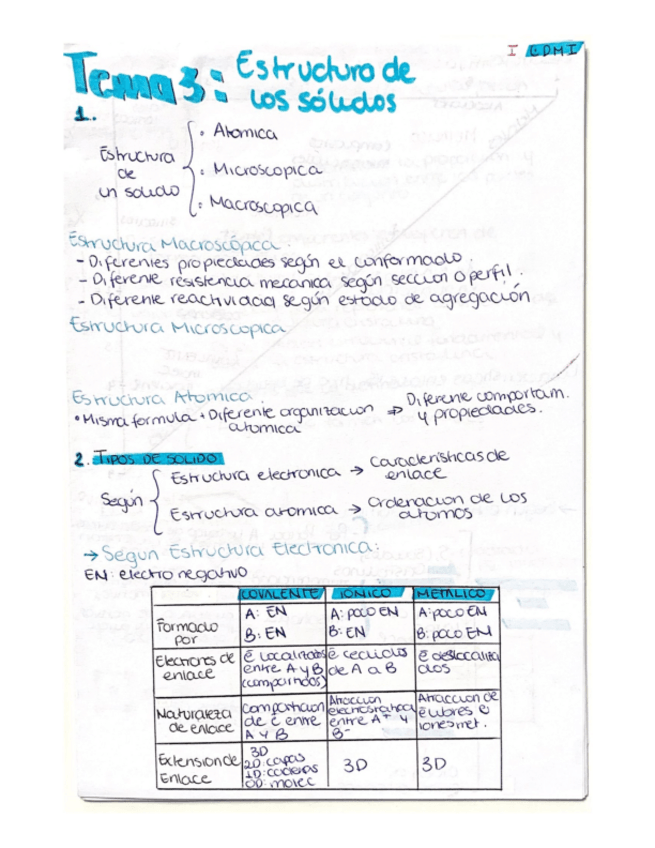 I EDMI
Tema 3: Estructura de
los sólidos
1.
Estructura
de
un solido
· Atomica
· Microscopica
· Macroscopica
Estructura Macroscópica.
- Diferentes propiedades según el conformado.
- Diferente resistencia mecanica según seccion o perfil.
- Diferente reactividad según estado de agregación
Estructura Microscopica
Estructura Atomica.
• Misma formula + Diferente organizacion
atomica
⇒ Diferente comportam.
y propiedades.
2. TIPOS DE SOLIDO
Según
Estructura electronica → Características de
enlace
Estructura atomica → Ordenacion de los
atomos
→ Segun Estructura Electronica:
EN: electro negativo
COVALENTE IÓNICO METÁLICO
Formado
por
A: EN
B: EN
A: poco EN
B: EN
A: poco EN
B: poco EN
Electrones de
enlace
ē localizados
entre A y B
(compartidos)
ē cedidos
de A a B
ē deslocaliza
dos
Naturaleza
de enlace
Comparticion
de ē entre
A y B
Atraccion
electrostatica
entre A⁺ y
B⁻
Atraccion de
ē libres e
iones met.
Extension de
Enlace
3D
2D: capas
1D: cadenas
0D: molec
3D
3D